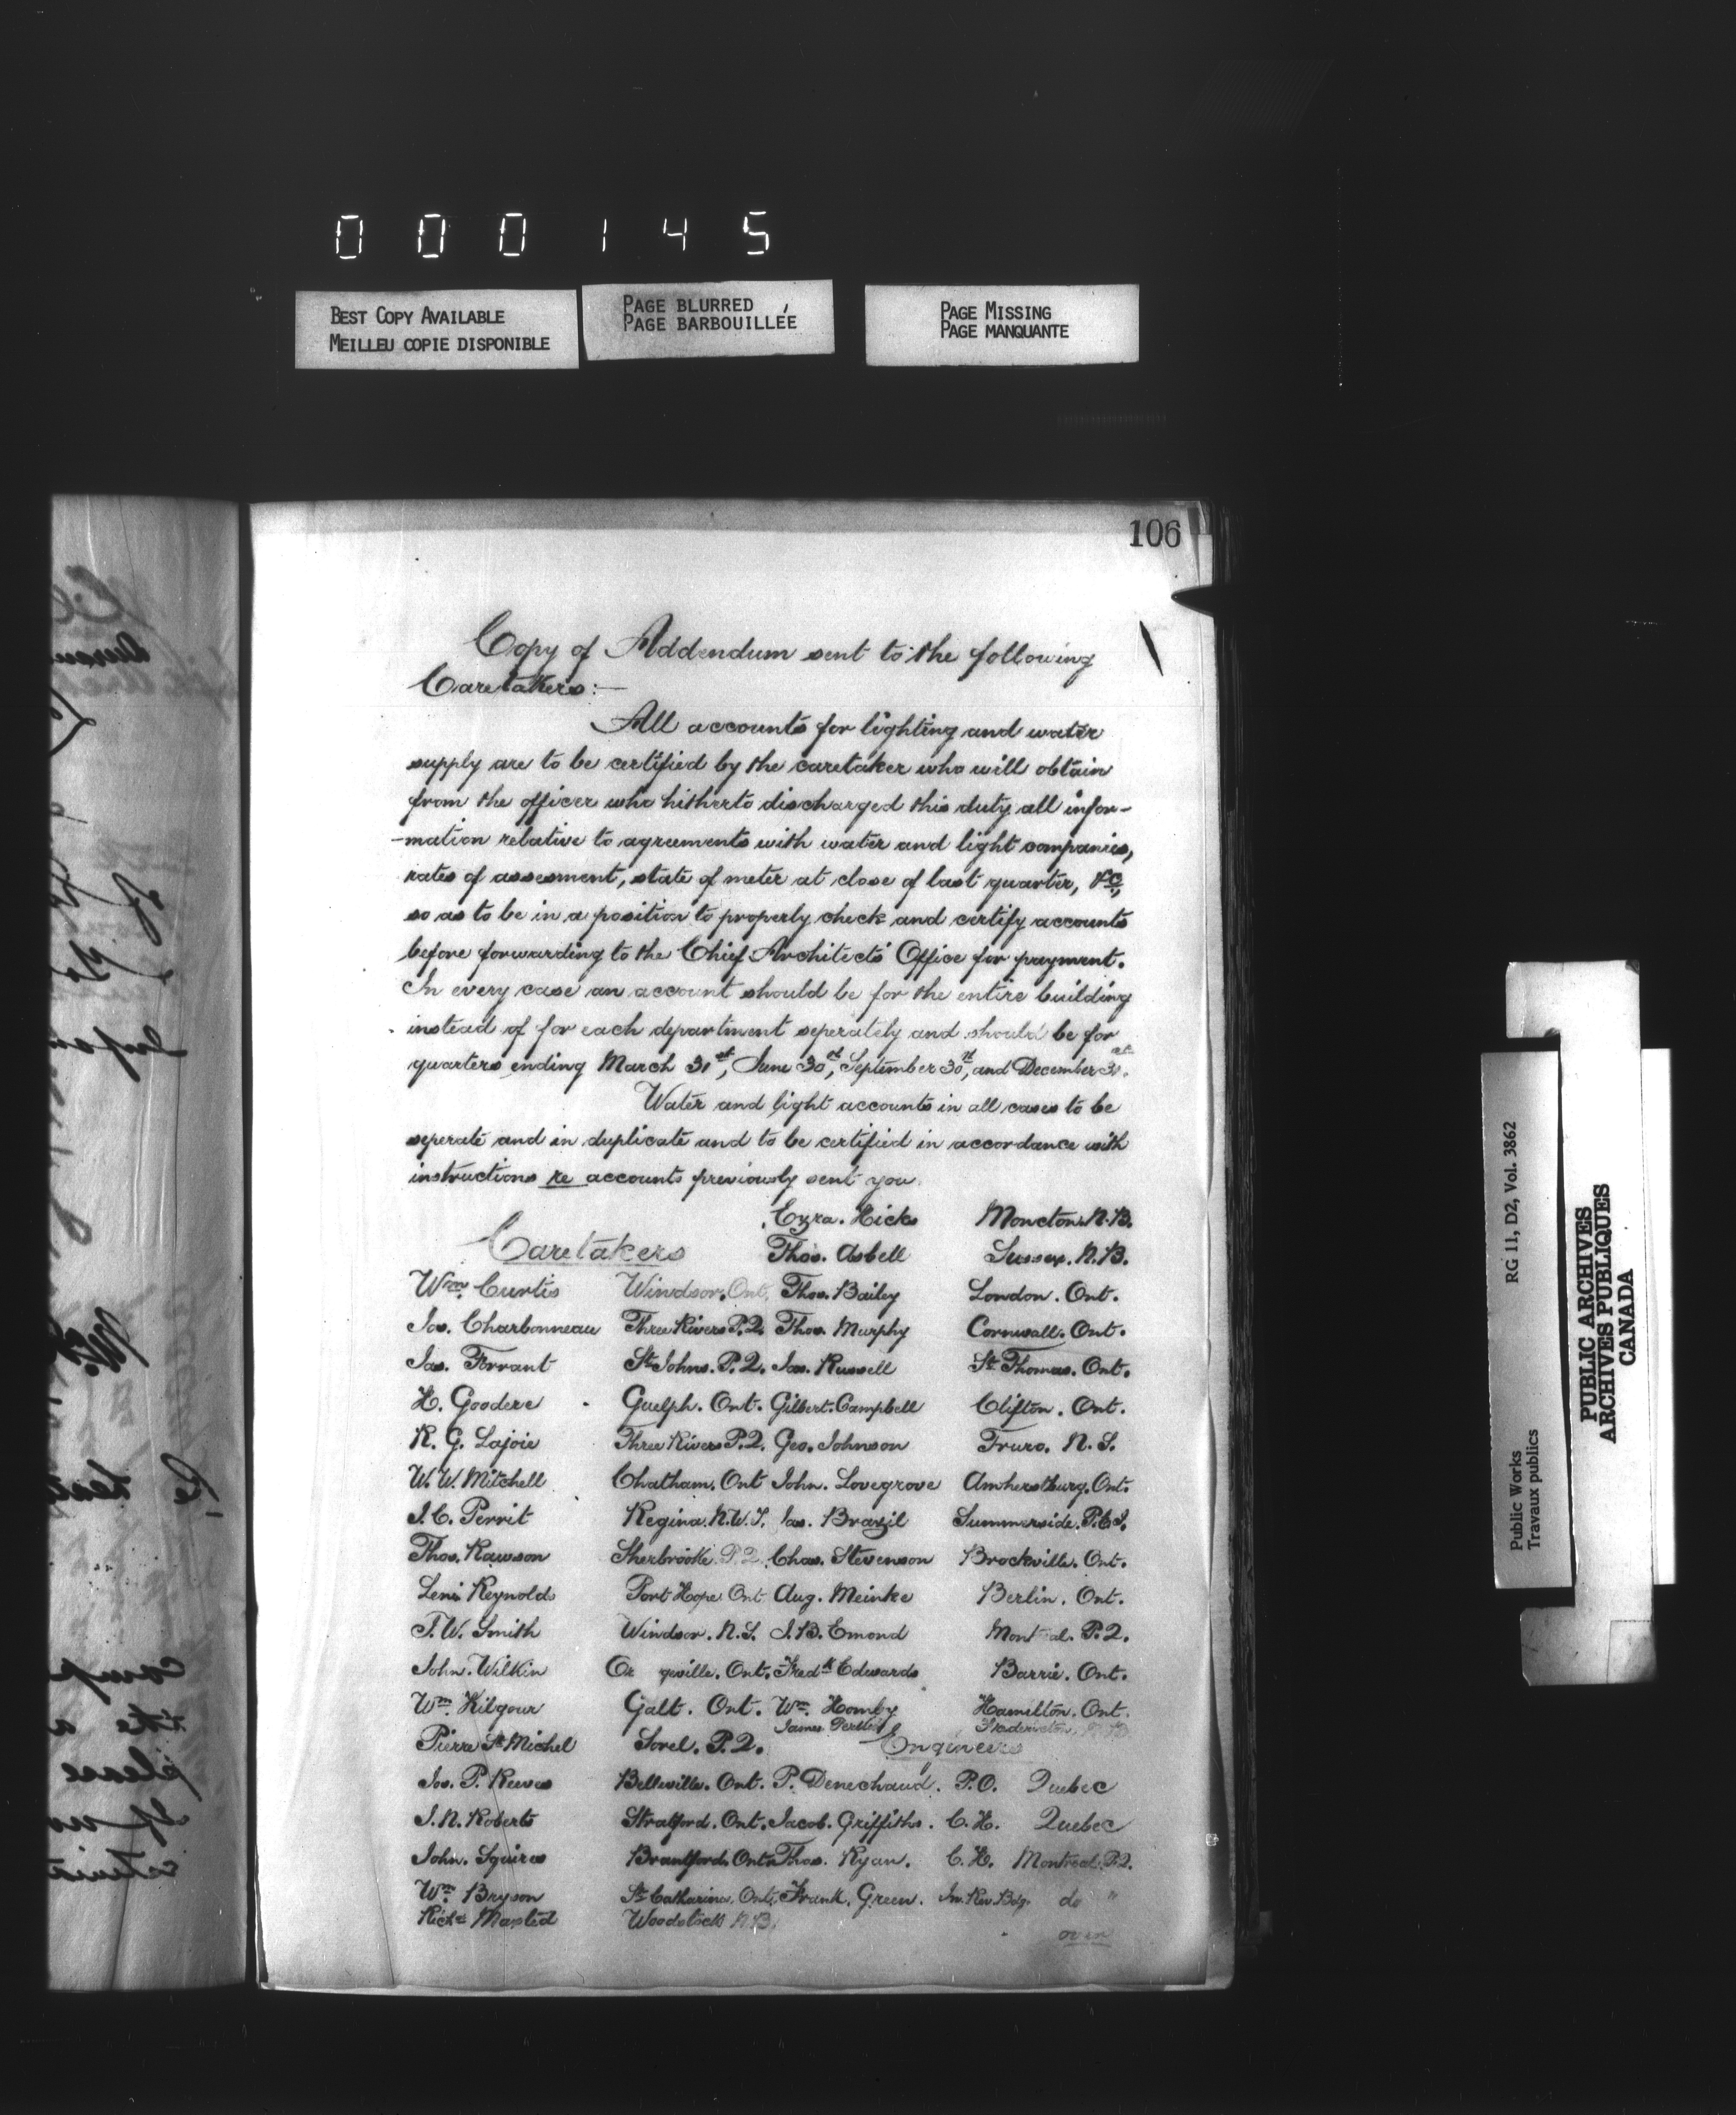 000145
BEST COPY AVAILABLE
MEILLEU COPIE DISPONIBLE
PAGE BLURRED
PAGE BARBOUILLÉE
PAGE MISSING
PAGE MANQUANTE
106
Copy of Addendum sent to the following
Caretakers:—
All accounts for lighting and water
supply are to be certified by the caretaker who will obtain
from the officer who hitherto discharged this duty all infor-
-mation relative to agreements with water and light companies,
rates of assessment, state of meter at close of last quarter, &c,
so as to be in a position to properly check and certify accounts
before forwarding to the Chief Architects' Office for payment.
In every case an account should be for the entire building
instead of for each department seperately and should be for
quarters ending March 31st, June 30th, September 30th, and December 31st.
Water and light accounts in all cases to be
seperate and in duplicate and to be certified in accordance with
instructions re accounts previously sent you.
Ezra. Hicks Moncton. N.B.
Caretakers Thos. Asbell Sussex. N.B.
Wm. Curtis Windsor. Ont. Thos. Bailey London. Ont.
Jos. Charbonneau Three Rivers P.Q. Thos. Murphy Cornwall. Ont.
Jas. Forrant St Johns. P.Q. Jas. Russell St Thomas. Ont.
H. Goodere Guelph. Ont. Gilbert. Campbell Clifton. Ont.
R. G. Lajoie Three Rivers P.Q. Geo. Johnson Truro. N.S.
W. W. Mitchell Chatham. Ont John. Lovegrove Amherstburg. Ont.
J. C. Perrit Regina. N.W.T. Jas. Brazil Summerside. P.E.I.
Thos. Rawson Sherbrooke P.Q. Chas. Stevenson Brockville. Ont.
Levi Reynolds Port Hope Ont Aug. Meinke Berlin. Ont.
T. W. Smith Windsor. N.S. J. B. Emond Mont al. P.Q.
John. Wilkin Or geville. Ont. Fredk Edwards Barrie. Ont.
Wm. Kilgour Galt. Ont. Wm. Homby Hamilton. Ont.
James Fredericton. N.B.
Pierre St Michel Sorel. P.Q. Engineers
Jos. P. Reeves Belleville. Ont. P. Denechaud. P.O. Quebec
J. N. Roberts Stratford. Ont. Jacob. Griffiths. C.H. Quebec
John. Squires Brantford. Ont. Thos. Ryan. C.H. Montreal. P.Q.
Wm. Bryson St Catharines. Ont. Frank. Green. In. Rev. Bdg. do "
Richd Maxted Woodstock N.B.
over
RG 11, D2, Vol. 3862
Public Works
Travaux publics
PUBLIC ARCHIVES
ARCHIVES PUBLIQUES
CANADA